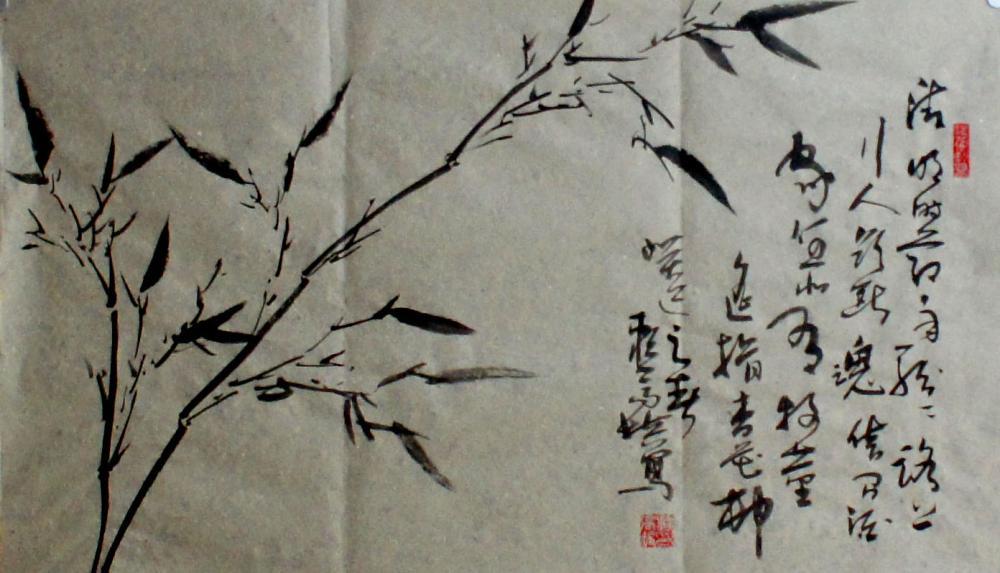 清明時節雨紛紛路上
行人欲斷魂借问酒
家何處有牧童
遙指杏花邨
之春
寫